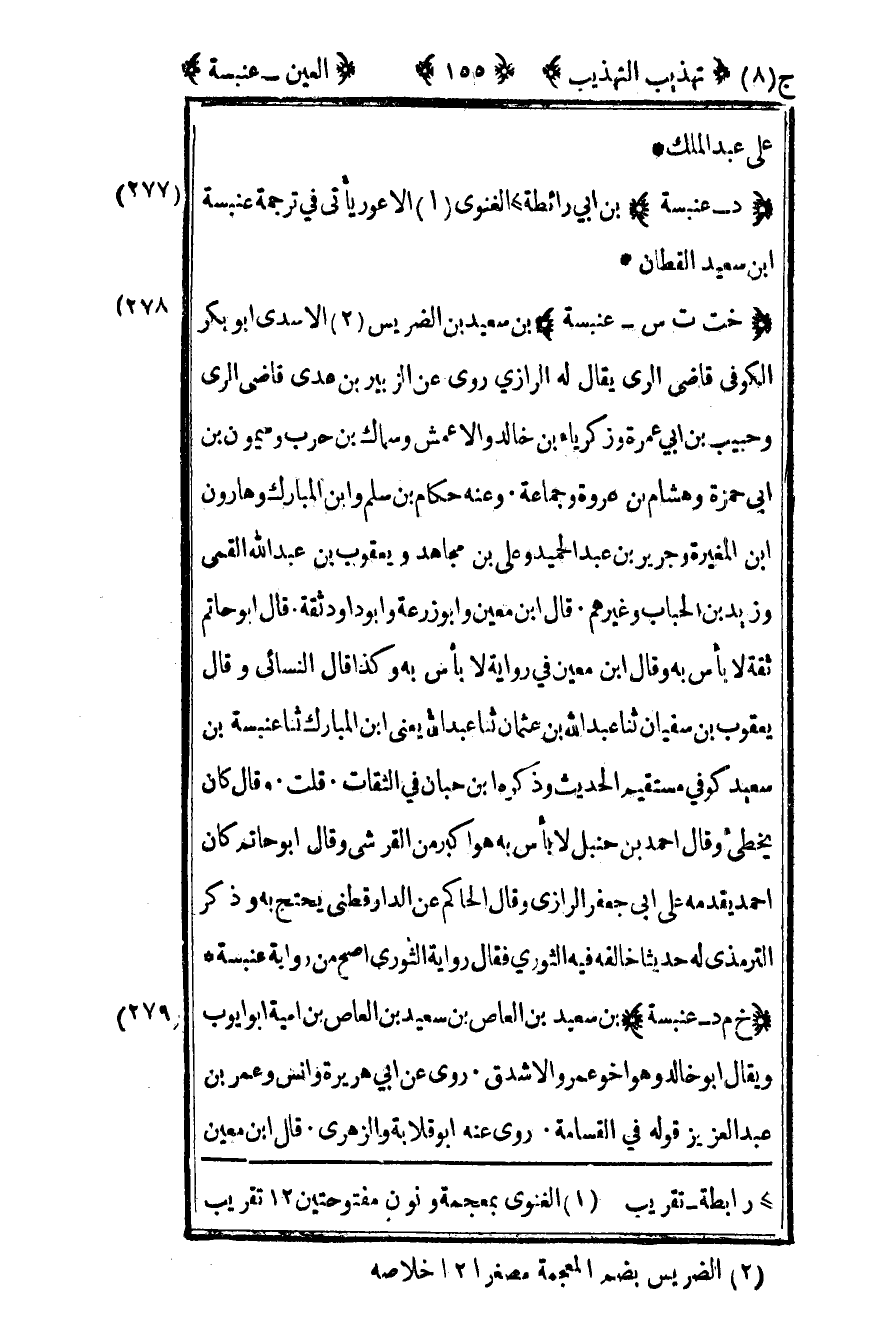 ج(٨) ﴿ تهذيب التهذيب ﴾ ﴿ ١٥٥ ﴾ ﴿ العين ـ عنبسة ﴾
على عبد الملك •
﴿ د ـ عنبسة ﴾ بن ابي رائطة > الغنوى (١) الاعور يأتى في ترجمة عنبسة (٢٧٧)
ابن سعيد القطان •
﴿ خت ت س ـ عنبسة ﴾ بن سعيد بن الضريس (٢) الاسدى ابو بكر (٢٧٨
الكوفى قاضى الرى يقال له الرازي روى عن الزبير بن عدى قاضى الرى
وحبيب بن ابي عمرة وزكرياء بن خالد والاعمش وسماك بن حرب وميمون بن
ابي حمزة وهشام بن عروة وجماعة . وعنه حكام بن سلم وابن المبارك وهارون
ابن المغيرة وجرير بن عبد الحميد وعلى بن مجاهد و يعقوب بن عبد الله القمى
وزيد بن الحباب وغيرهم . قال ابن معين وابو زرعة وابو داود ثقة . قال ابو حاتم
ثقة لا بأس به وقال ابن معين في رواية لا بأس به وكذا قال النسائى و قال
يعقوب بن سفيان ثنا عبد الله بن عثمان ثنا عبد الله يعنى ابن المبارك ثنا عنبسة بن
سعيد كوفي مستقيم الحديث وذكره ابن حبان في الثقات . قلت . وقال كان
يخطئ وقال احمد بن حنبل لا بأس به هو اكبر من القرشى وقال ابو حاتم كان
احمد يقدمه على ابى جعفر الرازى وقال الحاكم عن الدارقطنى يحتج به وذكر
الترمذى له حديثا خالفه فيه الثوري فقال رواية الثورى اصح من رواية عنبسة •
﴿ خ م د ـ عنبسة ﴾ بن سعيد بن العاص بن سعيد بن العاص بن امية ابو ايوب (٢٧٩)
ويقال ابو خالد وهو اخو عمرو الاشدق . روى عن ابي هريرة وانس وعمر بن
عبد العزيز قوله في القسامة . روى عنه ابو قلابة والزهرى . قال ابن معين
> رابطة ـ تقريب (١) الغنوى بمعجمة و نون مفتوحتين ١٢ تقريب
(٢) الضريس بضم المعجمة مصغرا ١٢ خلاصه